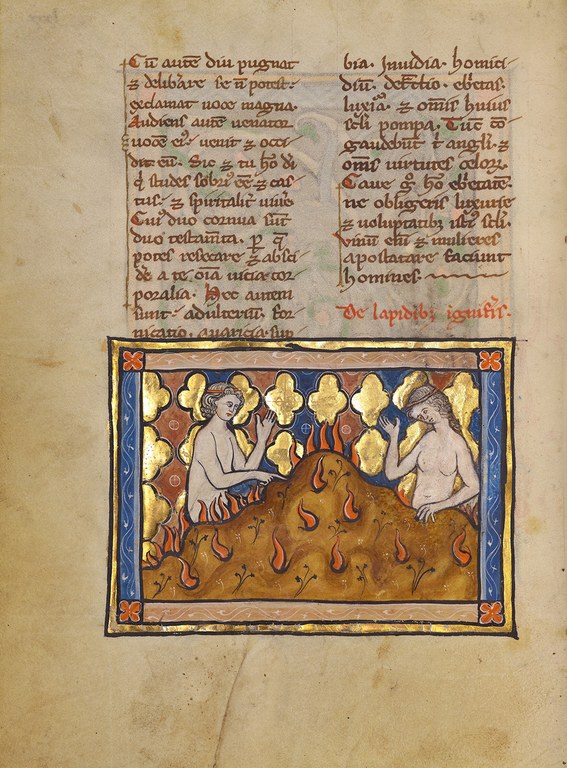 Cū autē diu pugnat
⁊ delibare se n̄ potest·
exclamat voce magna·
Audiens autē venator
vocē eiꝰ· venit ⁊ occi
dit eū· Sic ⁊ tu hō dī
q studes sobriꝰ ēē ⁊ cas
tus· ⁊ spiritalit' viue
Cuiꝰ duo cornua sūt
duo testam̄ta· ꝑ q̄
potes resecare ⁊ absci
de a te oīa uicia cor
poralia· Hec autem
sunt· adulteriū, for
nicatio, auaricia, sup
bia· Inuidia· homici
diū· det̄ctio· eb'etas·
luxīa· ⁊ omīs huius
sc̄li pompa· Tūc cō
gaudebūt t' angl'i· ⁊
om̄s uirtutes celoꝝ·
Caue g̊ hō eb'etatē·
ne obligeris luxurie
⁊ voluptatibꝫ isti' sc̄li·
vinū eni' ⁊ mulieres
apostatare faciunt
homines·
De lapidibꝫ ignif'is·